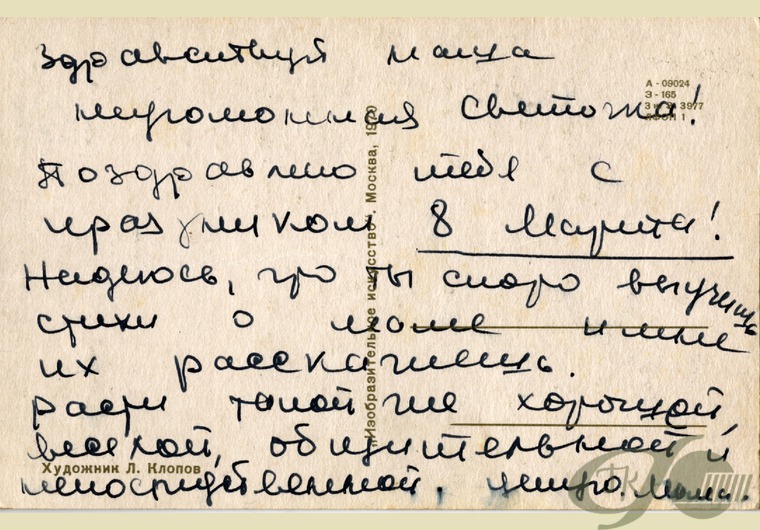 Здравствуй наша
неугомонная Светочка!
Поздравляю тебя с
праздником 8 Марта!
Надеюсь, что ты скоро выучишь
стихи о маме и мне
их расскажешь.
Расти такой же хорошей,
веселой, общительной и
непосредственной.
А - 09024
З - 165
3977
«Изобразительное искусство». Москва, 1970
Художник Л. Клопов